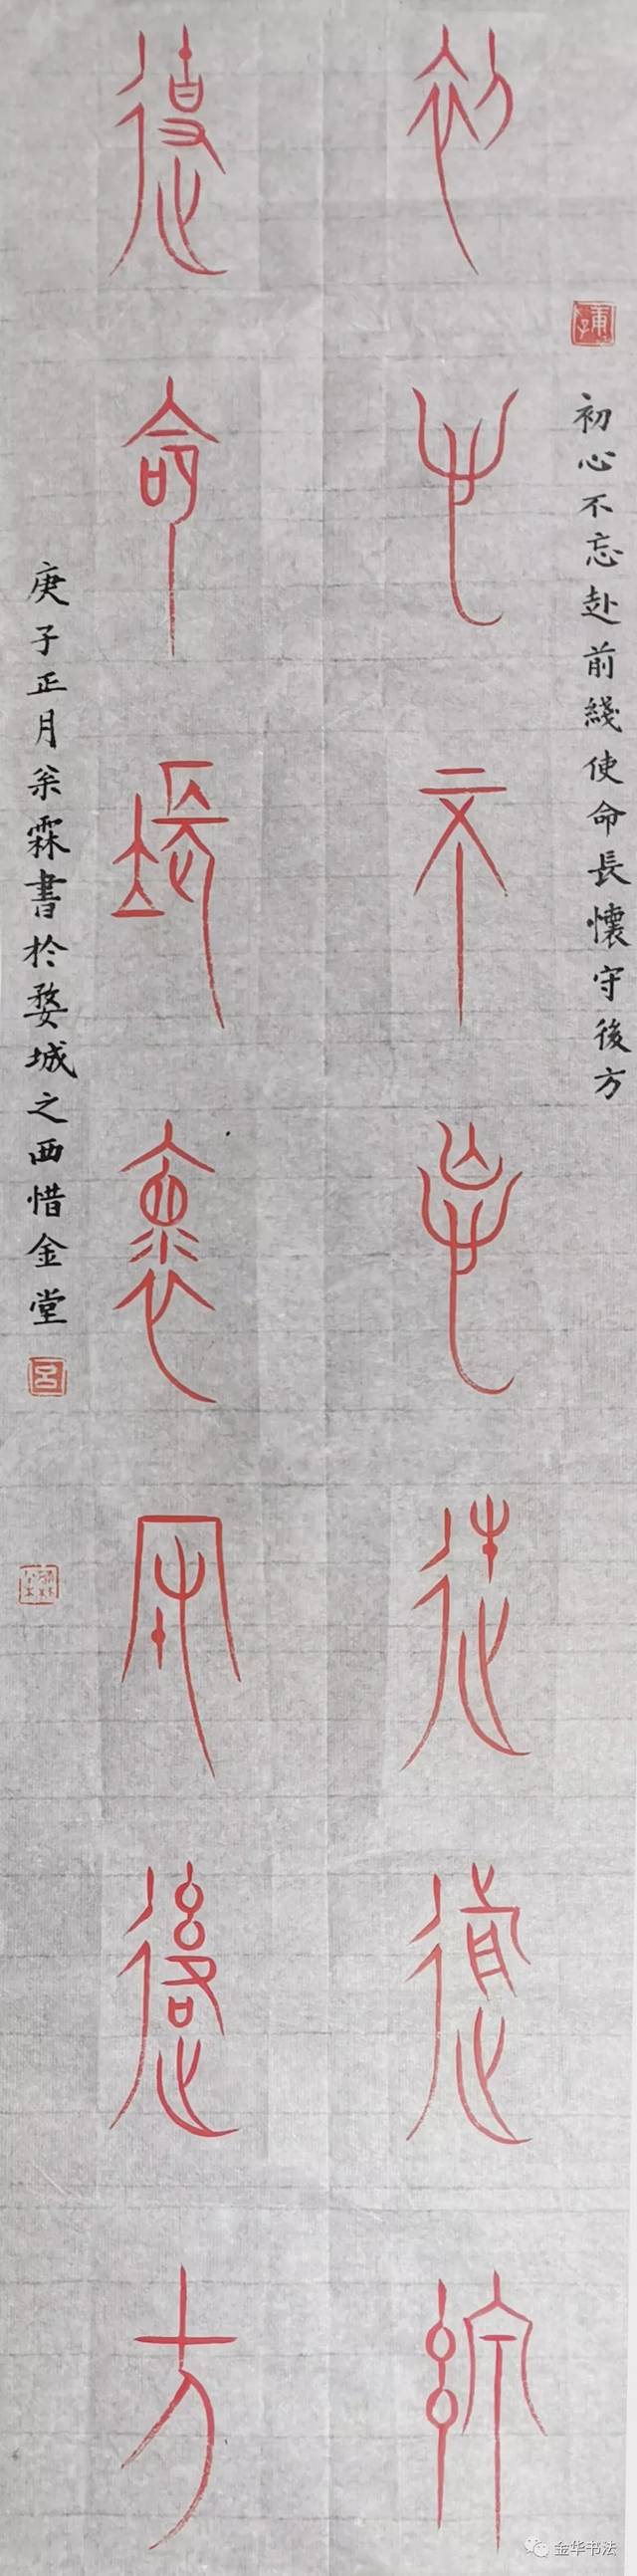 初心不忘赴前綫
使命長懷守後方
初心不忘赴前綫使命長懷守後方
庚子正月翁霖書於婺城之西惜金堂
金华书法